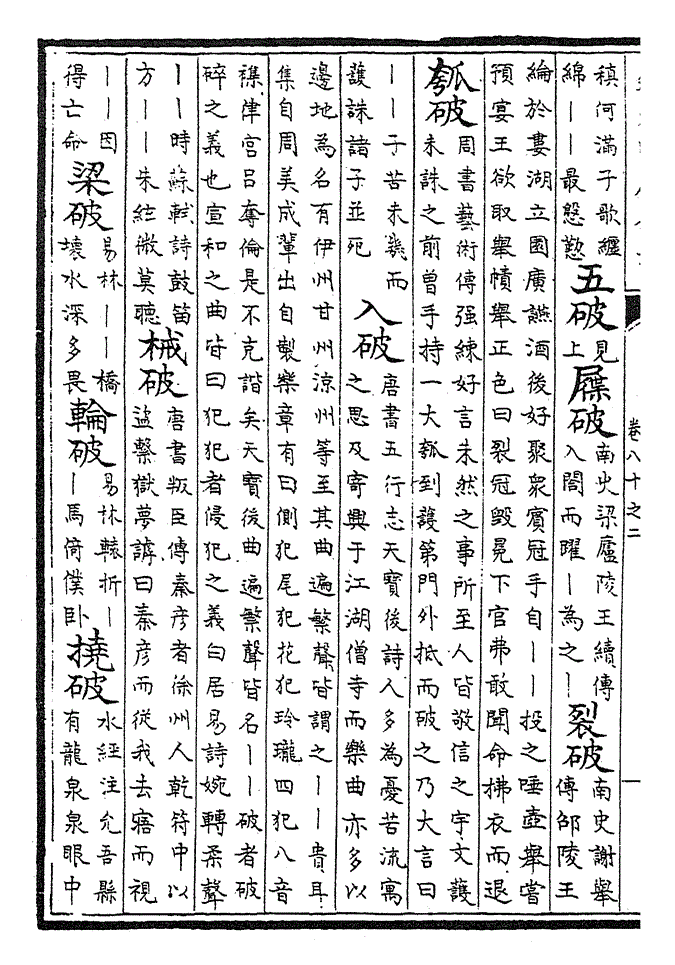 卷八十之二
一
稹何滿子歌纏
綿丨丨最慇懃
五破
見
上
屧破
南史梁廬陵王續傳
入閤而躍丨為之丨
裂破
南史謝舉
傳邵陵王
綸於婁湖立園廣讌酒後好聚衆賓冠手自丨丨投之唾壺舉嘗
預宴王欲取舉幘舉正色曰裂冠毀冕下官弗敢聞命拂衣而退
瓠破
周書藝術傳强練好言未然之事所至人皆敬信之宇文護
未誅之前曾手持一大瓠到護第門外抵而破之乃大言曰
丨丨子苦未幾而
護誅諸子並死
入破
唐書五行志天寶後詩人多為憂苦流寓
之思及寄興于江湖僧寺而樂曲亦多以
邊地為名有伊州甘州涼州等至其曲遍繁聲皆謂之丨丨貴耳
集自周美成輩出自製樂章有曰側犯尾犯花犯玲瓏四犯八音
襍律宮呂奪倫是不克諧矣天寶後曲遍繁聲皆名丨丨破者破
碎之義也宣和之曲皆曰犯犯者侵犯之義白居易詩婉轉柔聲
丨丨時蘇軾詩鼓笛
方丨丨朱絃微莫聽
械破
唐書叛臣傳秦彥者徐州人乾符中以
盜繫獄夢謼曰秦彥而從我去寤而視
丨丨因
得亡命
梁破
易林丨丨橋
壞水深多畏
輪破
易林轅折丨
丨馬倚僕卧
撓破
水經注允吾縣
有龍泉泉眼中